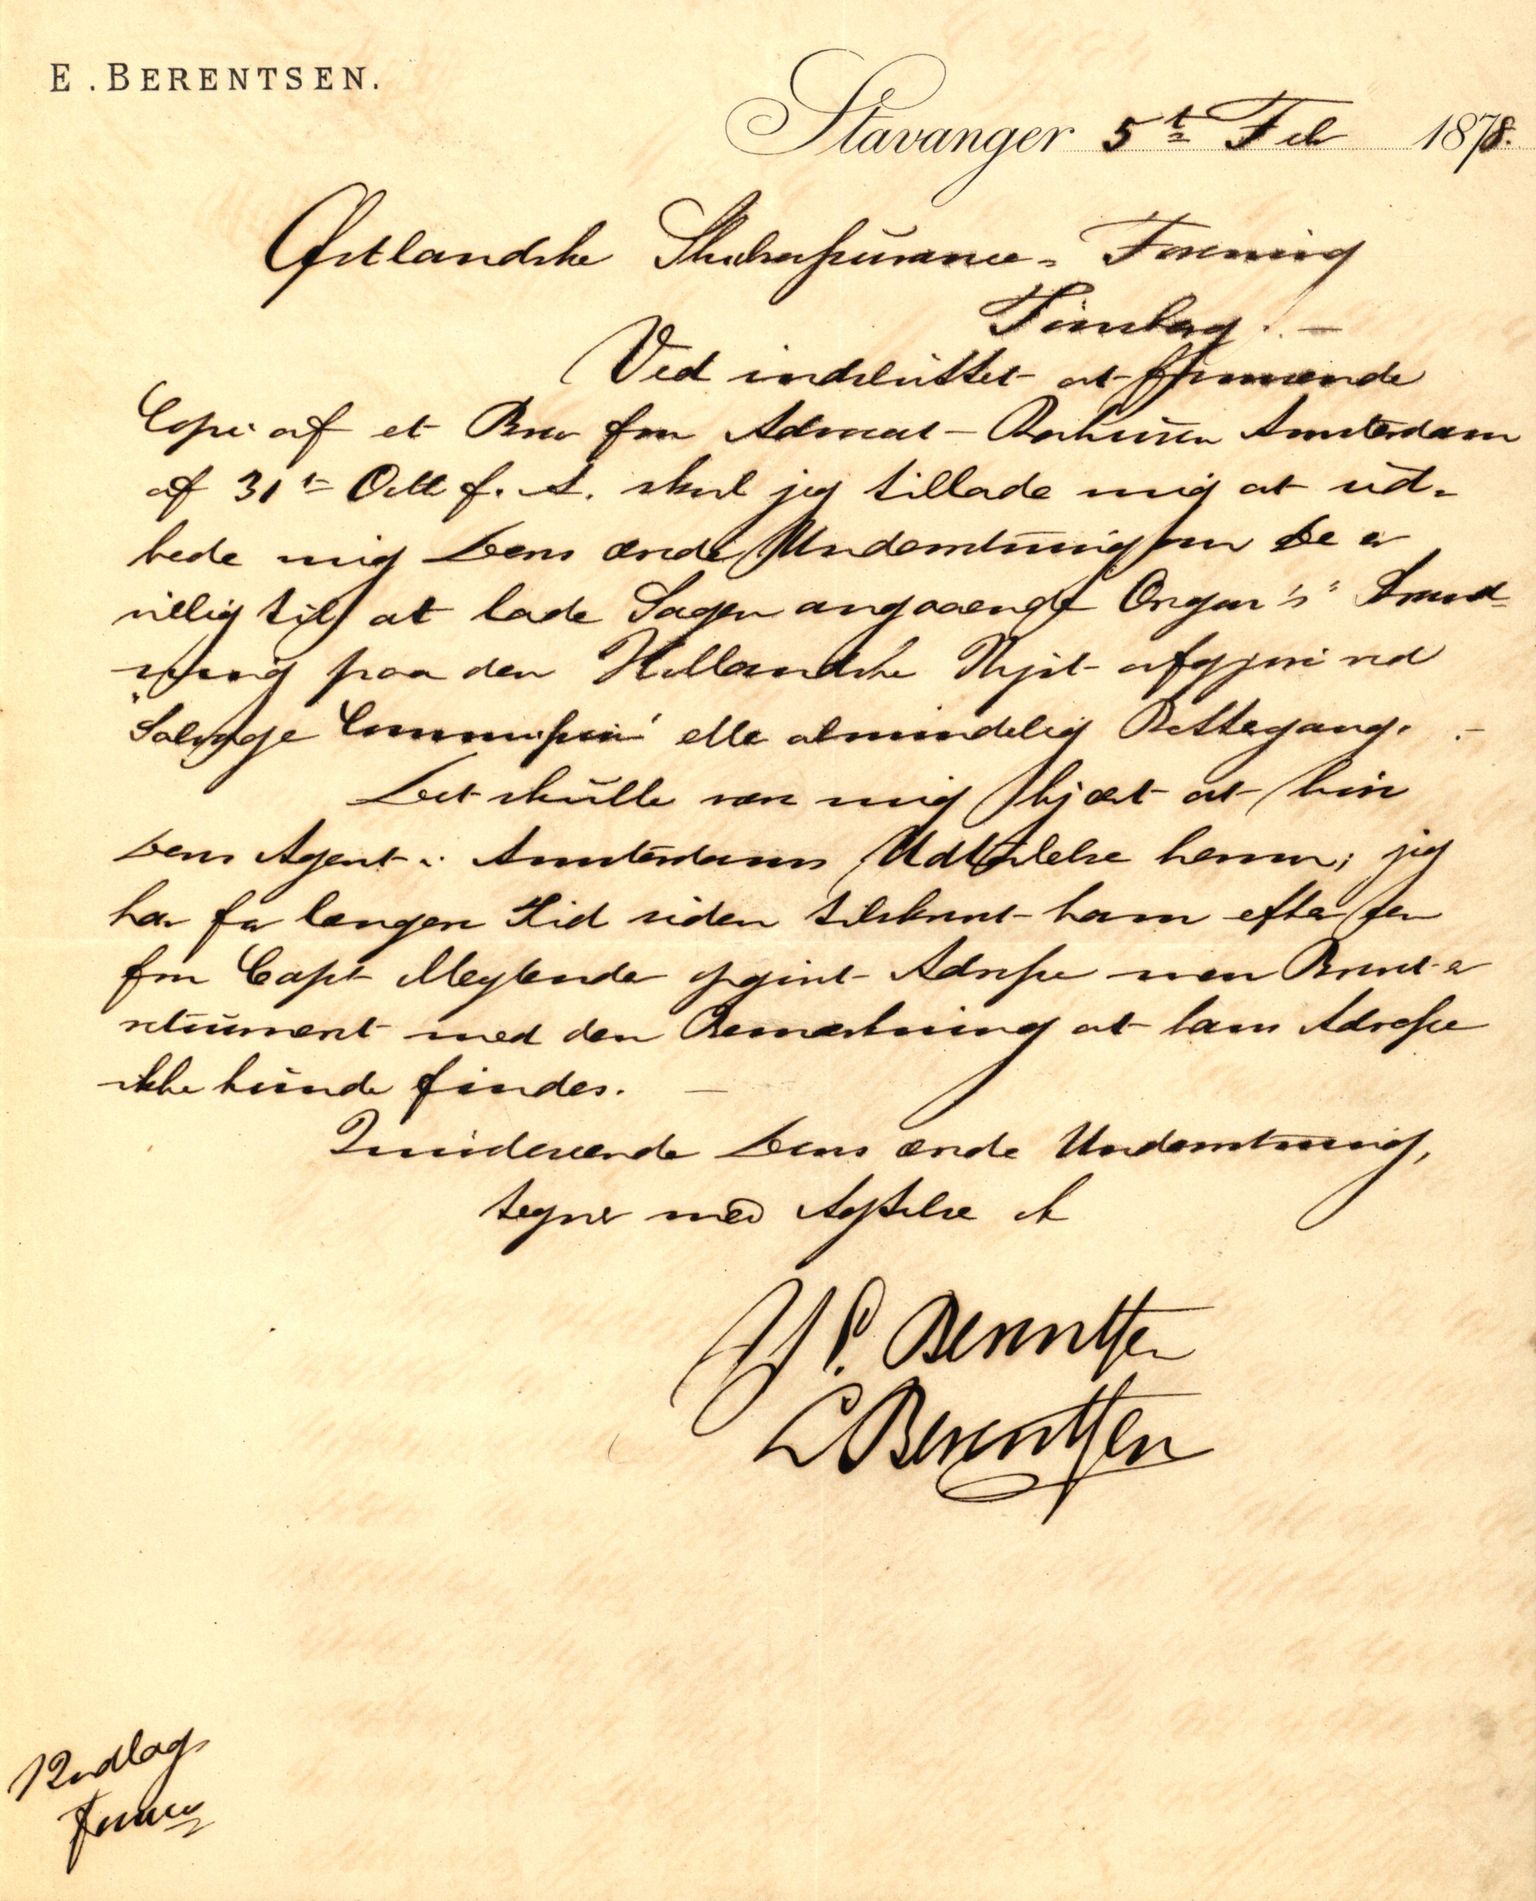 E. BERENTSEN.
Stavanger 5t Feb 1878.
Østlandske Skibsassurance-Forening
Tønsberg. —
Ved indsluttet at fremsende
Copi af et Brev fra Advocat Amsterdam
af 31t Octb f. A. skul jeg tillade mig at ud-
bede mig Deres ærede Underretning om De er
villig til at lade Sagen angaaende Organ's Strand-
ning paa den Hollandske Kyst afgjøre ved
"Salvage Commission" eller almindelig Rettegang. —
Det skulle være mig kjært at høre
Deres Agent i Amsterdams Udtalelse herom; jeg
har for længere Tid siden tilskrevet ham efter en
fra Capt opgivet Adresse men Brevet er
returneret med den Bemærkning at hans Adresse
ikke kunde findes. —
Imødeseende Deres ærede Underretning,
tegner med Agtelse
Berentsen
Berentsen
1 Indlag